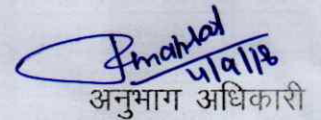 4/9/18
अनुभाग अधिकारी